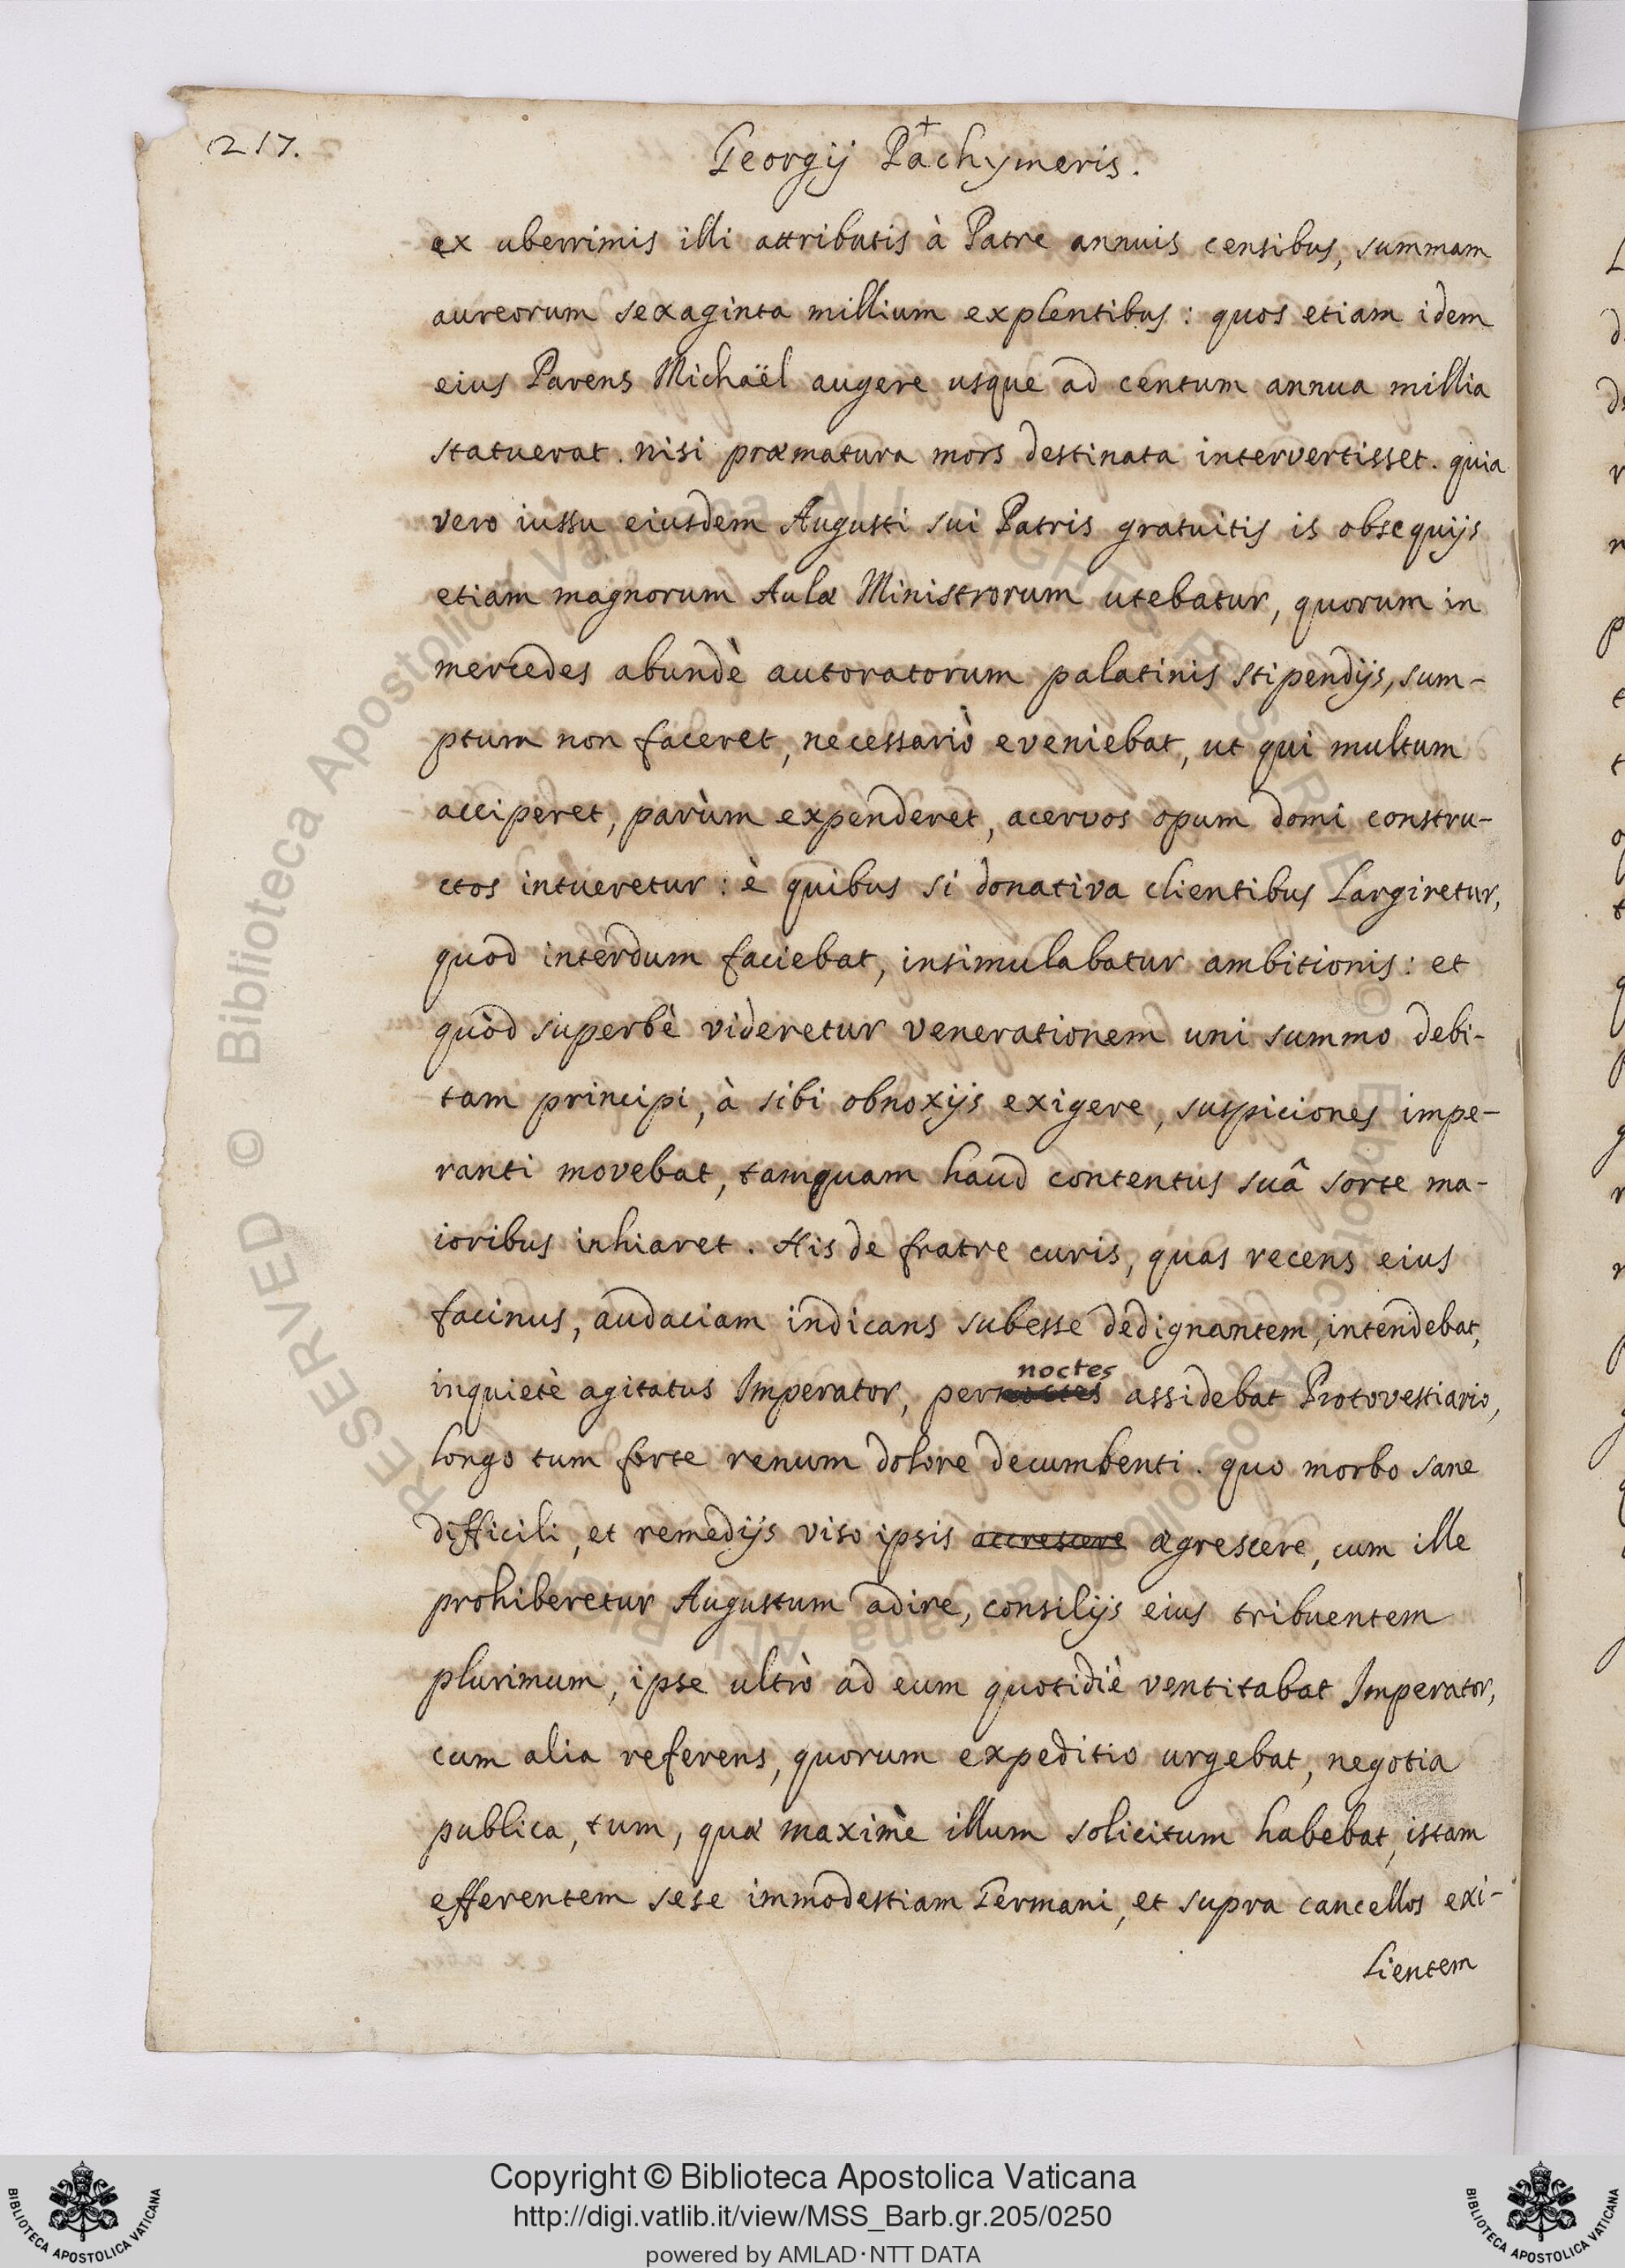 217.
Georgij Pachymeris.
ex uberrimis illi attributis à Patre annuis censibus, summam
aureorum sexaginta millium explentibus: quos etiam idem
eius Parens Michaël augere usque ad centum annua millia
statuerat. nisi præmatura mors destinata intervertisset. quia
vero iussu eiusdem Augusti sui Patris gratuitis is obsequijs
etiam magnorum Aulæ Ministrorum utebatur, quorum in
mercedes abundè autoratorum palatinis stipendijs, sum-
ptum non faceret, necessariò eveniebat, ut qui multum
acciperet, parùm expenderet, acervos opum domi constru-
ctos intueretur: è quibus si donativa clientibus largiretur,
quod interdum faciebat, insimulabatur ambitionis: et
quòd superbè videretur venerationem uni summo debi-
tam principi, à sibi obnoxijs exigere, suspiciones impe-
ranti movebat, tamquam haud contentus suâ sorte ma-
ioribus inhiaret. His de fratre curis, quas recens eius
facinus, audaciam indicans subesse dedignantem, intendebat,
noctes
inquietè agitatus Imperator, per noctes assidebat Protovestiario,
longo tum forte renum dolore decumbenti. quo morbo sane
difficili, et remedijs viso ipsis accrescere ægrescere, cum ille
prohiberetur Augustum adire, consilijs eius tribuentem
plurimum, ipse ultrò ad eum quotidiè ventitabat Imperator,
cum alia referens, quorum expeditio urgebat, negotia
publica, tum, quæ maximè illum solicitum habebat, istam
efferentem sese immodestiam Germani, et supra cancellos exi-
lientem
Copyright © Biblioteca Apostolica Vaticana
http://digi.vatlib.it/view/MSS_Barb.gr.205/0250
powered by AMLAD·NTT DATA
BIBLIOTECA APOSTOLICA VATICANA
BIBLIOTECA APOSTOLICA VATICANA